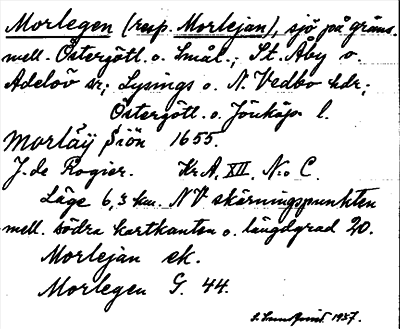 Morlegen (resp. Morlejan), sjö på gräns.
mell. Östergötl. o. Smål.; St. Åby o.
Adelöv sr; Lysings o. N. Vedbo hdr;
Östergötl. o. Jönköp. l.
Morlåÿ Siön 1655.
J. de Rogier. Kr.A. XII. N:o C.
Läge 6,3 km. NV skärningspunkten
mell. södra kartkanten o. längdgrad 20.
Morlejan ek.
Morlegen G. 44.
1937.